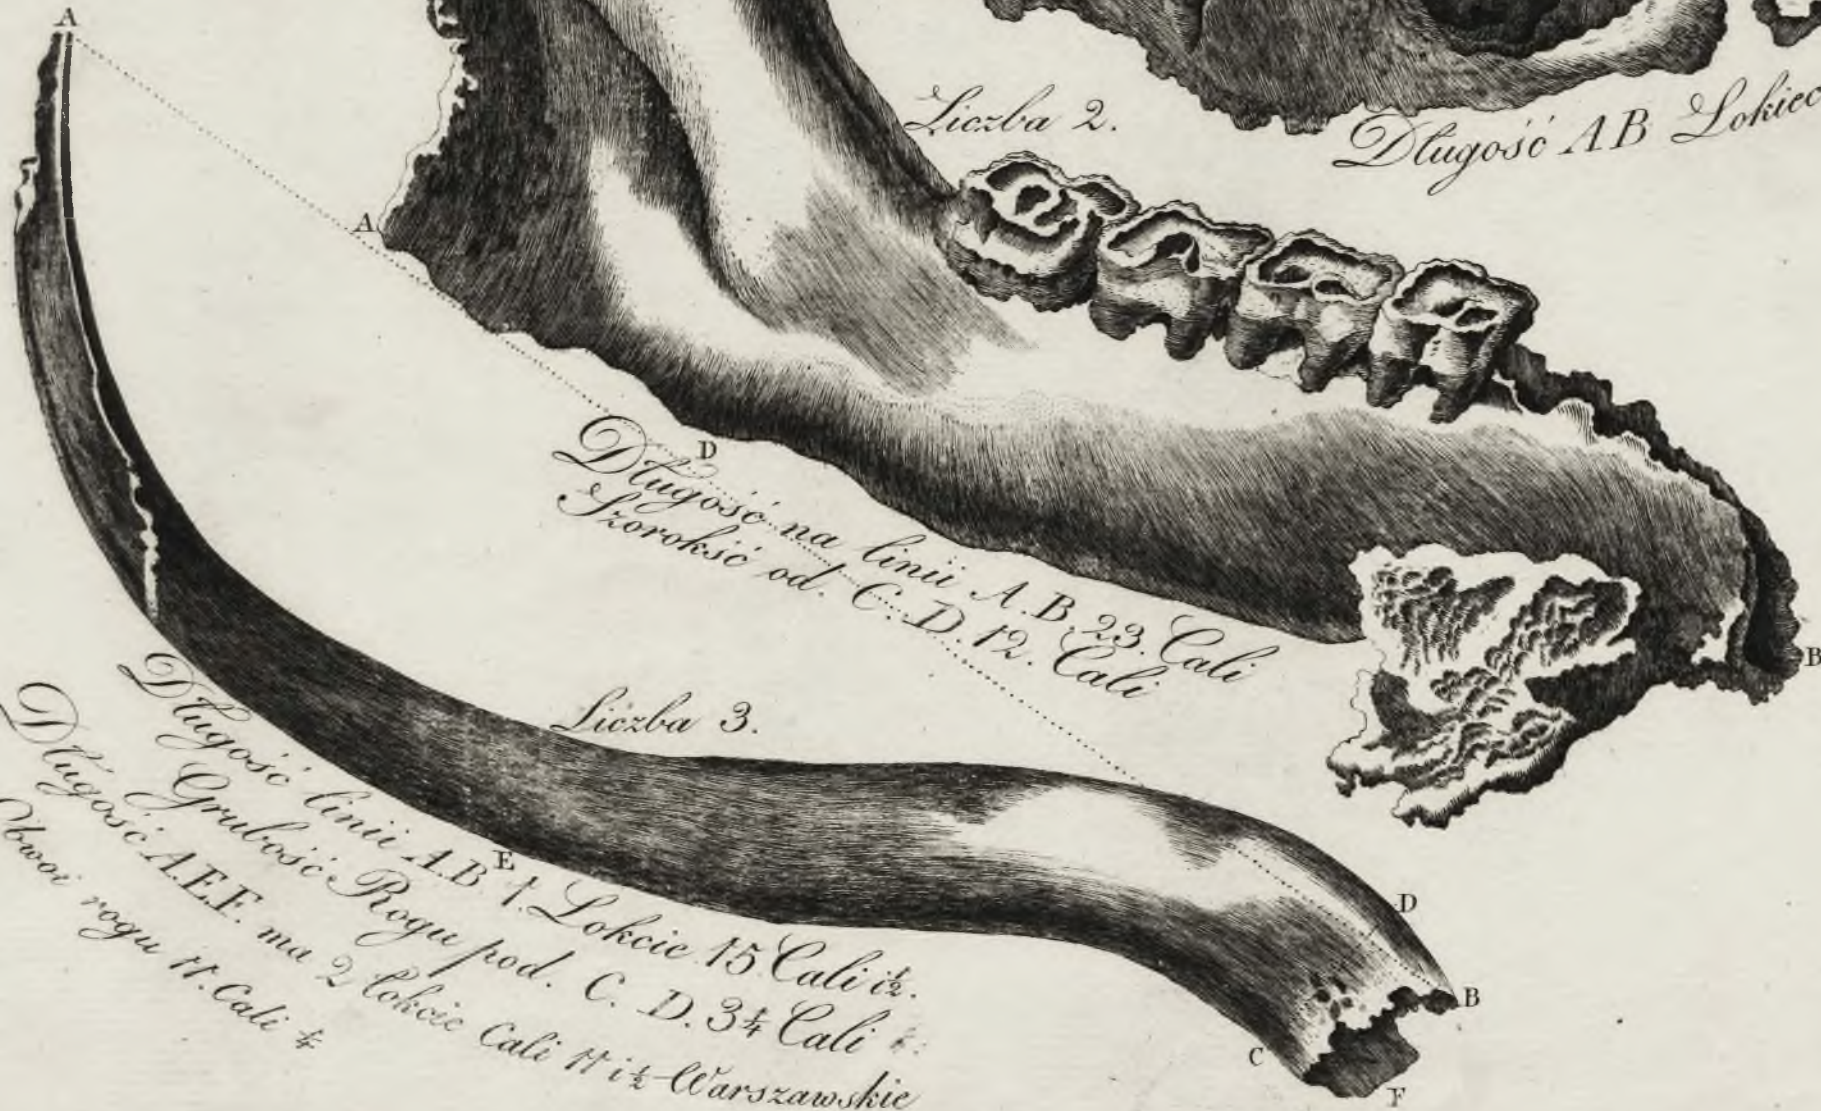 A
Liczba 2.
Długość A B Lokiec
A
D
Długość na linii A. B. 23. Cali
Szorokść od. C. D. 12. Cali
B
Liczba 3.
Długość linii A.B 1. Lokcie 15 Cali i½.
E
Grubość Rogu pod. C. D. 3¼ Cali
Długość A.E.F. ma 2 lokcie Cali 11 i½ Warszawskie
Obwoi rogu 11. Cali ¼
D
B
C
F